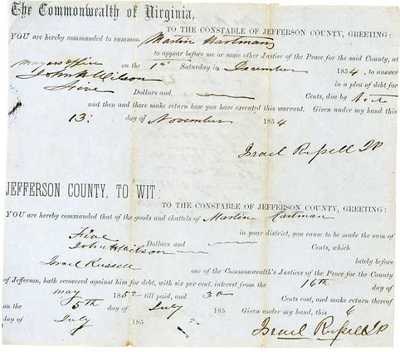 The Commonwealth of Virginia,
TO THE CONSTABLE OF JEFFERSON COUNTY, GREETING:
YOU are hereby commanded to summon Martin Hartman
to appear before me or some other Justice of the Peace for the said County, at
on the 1st Saturday in December 1854, to answer
John Wilson in a plea of debt for
Five Dollars and Cents, due by Note
and then and there make return how you have executed this warrant. Given under my hand this
13th day of November 1854
Israel Russell JP
JEFFERSON COUNTY, TO WIT:
TO THE CONSTABLE OF JEFFERSON COUNTY, GREETING:
YOU are hereby commanded that of the goods and chattels of Martin Hartman
in your district, you cause to be made the sum of
Five Dollars and Cents, which
John Wilson lately before
Israel Russell one of the Commonwealth's Justices of the Peace for the County
of Jefferson, hath recovered against him for debt, with six per cent. interest from the 16th day of
May 185 till paid, and 30 Cents cost, and make return thereof
on the 5th day of July 185 Given under my hand, this 6
day of July 185 Israel Russell JP